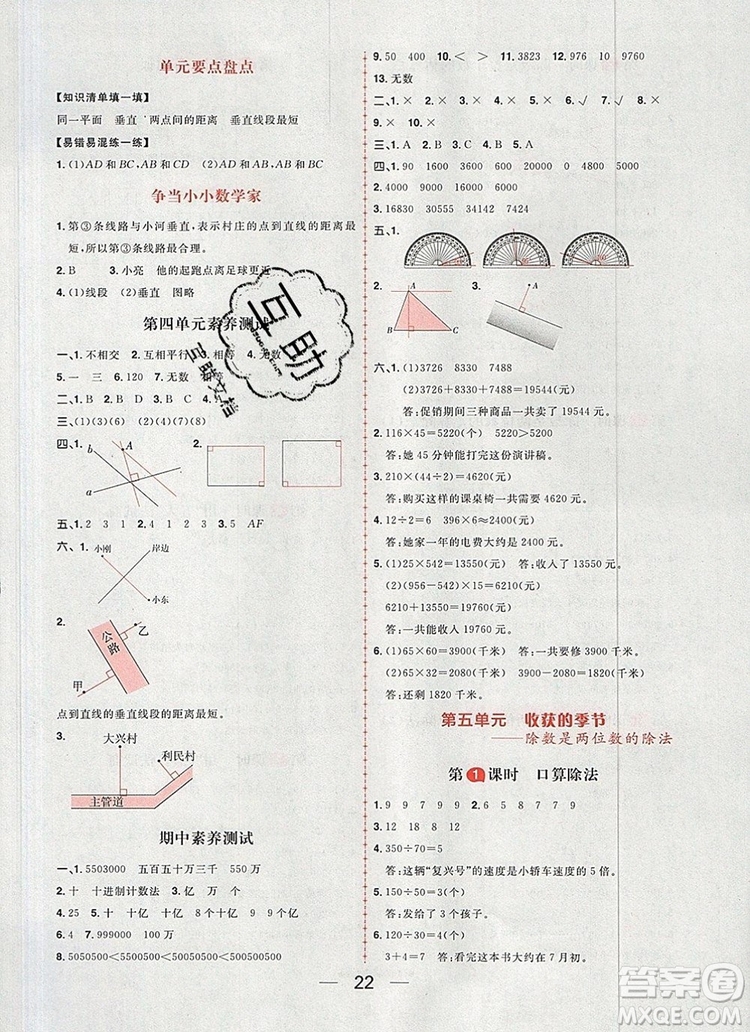 单元要点盘点
【知识清单填一填】
同一平面 垂直 两点间的距离 垂直线段最短
【易错易混练一练】
1.(1)AD和BC,AB和CD (2)AD和BC,AB和BC
争当小小数学家
1.第③条线路与小河垂直,表示村庄的点到直线的距离最
短,所以第③条线路最合理。
2.B 3.小亮 他的起跑点离足球更近
4.(1)线段 (2)垂直 图略
第四单元素养测试
一、1.不相交 2.互相平行 3.相等 4.无数
5.一 三 6.120 7.无数 8.无数
二、1.B 2.C 3.B 4.C 5.C
三、(1)(2)(4) (3)(6)(7)(8)
四、1. 2.
b A
a
五、1 2 3 1 2 4 1 2 3 5 AF
六、1. 小刚 岸边
小东
2.
公路 乙
甲
点到直线的垂直线段的距离最短。
3. 大兴村
利民村
主管道
期中素养测试
一、1.5503000 五百五十万三千 550万
2.十 十进制计数法 3.亿 万 万
4.25 5.十 十亿 十亿 十亿
6.4 7.999000 100万
8.5050500<5055000<5500500<5505000
9.50 400 10.< > 11.3823 12.10 9760
13.无数
二、1.✓ 2.✓ 3.× 4.✓ 5.× 6.× 7.× 8.✓
9.× 10.×
三、1.C 2.C 3.B 4.B 5.B
四、1.90 1600 4000 150 20 0 4800 5000
2.16830 15755 30555 34031 7424
五、1.
2. A 3. A
B C
六、1.(1)3726 8330 7488
(2)3726+8330+7488=19544(元)
答:促销期间三种商品一共卖了19544元。
2.116×45=5220(个) 5220>5200
答:她45分钟能打完这份演讲稿。
3.210×(44÷2)=4620(元)
答:购买这样的课桌椅一共要花4620元。
4.12÷2=6 396×6≈2400(元)
答:她家一年的电费大约是2400元。
5.(1)25×542=13550(元) 答:收入了13550元。
(2)(956-542)×15=6210(元)
6210+13550=19760(元)
答:一共能收入19760元。
6.(1)65×60=3900(千米) 答:一共要修3900千米。
(2)65×32=2080(千米) 3900-2080=1820(千米)
答:还剩1820千米。
第五单元 收获的季节
——除数是两位数的除法
第1课时 口算除法
1.9 7 9 9 9 2.6 5 8 7 7 8 6 9
3.12 18 8 12
4.350÷70=5
答:这辆“复兴号”的速度是小轿车速度的5倍。
5.150÷50=3(个)
答:至少有3个孩子。
6.120÷30=4(个)
3+4=7 答:看完这本书大约在7月初。
22
互助
互助文档
答案圈
MXQE.COM